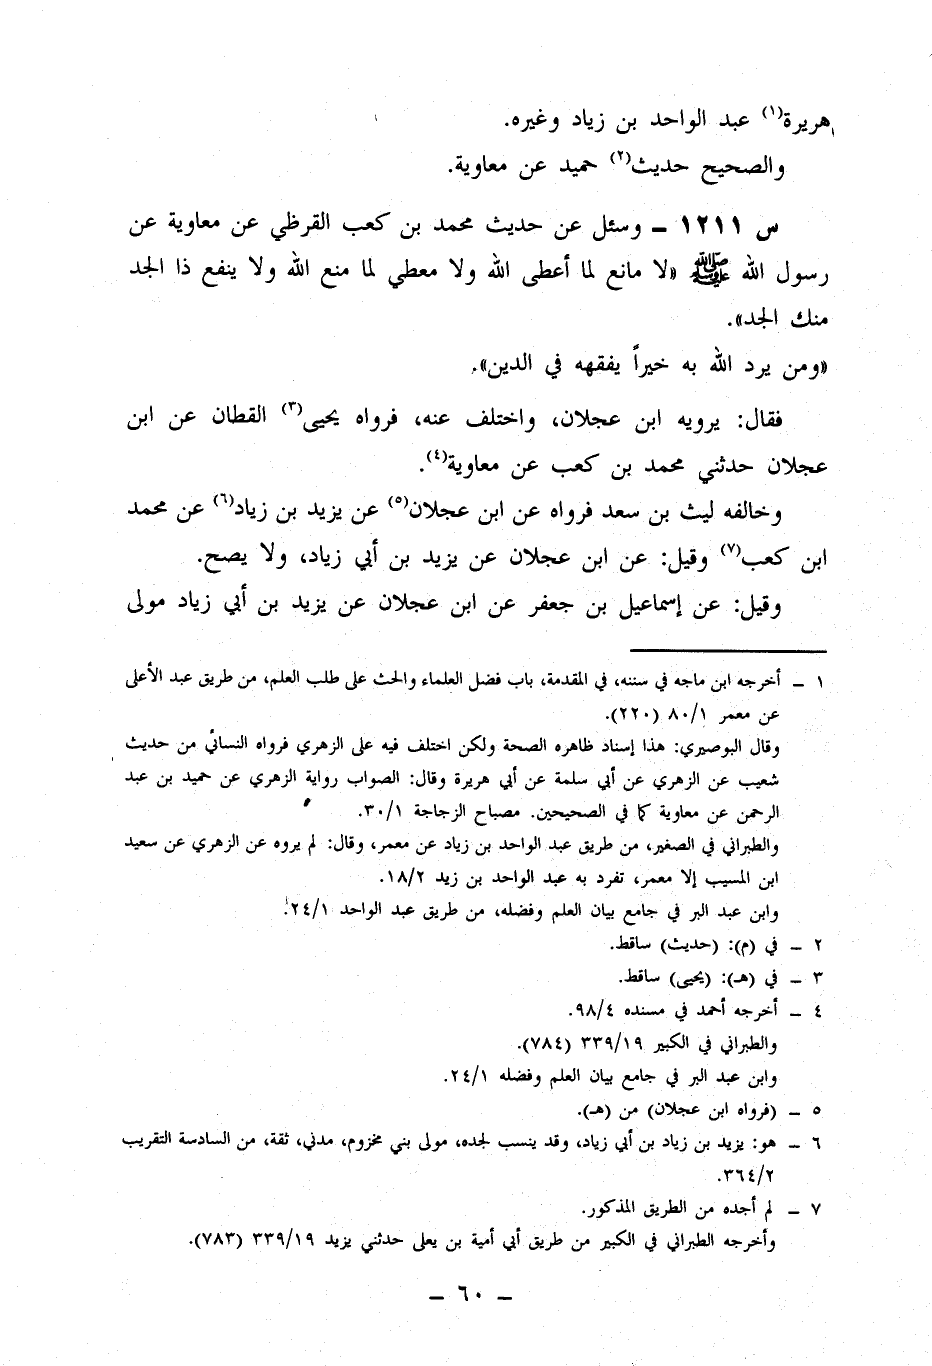 هريرة(١) عبد الواحد بن زياد وغيره.
والصحيح حديث(٢) حميد عن معاوية.
س ١٢١١ – وسئل عن حديث محمد بن كعب القرظي عن معاوية عن
رسول الله ﷺ «لا مانع لما أعطى الله ولا معطي لما منع الله ولا ينفع ذا الجد
منك الجد».
«ومن يرد الله به خيراً يفقهه في الدين».
فقال: يرويه ابن عجلان، واختلف عنه، فرواه يحيى(٣) القطان عن ابن
عجلان حدثني محمد بن كعب عن معاوية(٤).
وخالفه ليث بن سعد فرواه عن ابن عجلان(٥) عن يزيد بن زياد(٦) عن محمد
ابن كعب(٧) وقيل: عن ابن عجلان عن يزيد بن أبي زياد، ولا يصح.
وقيل: عن إسماعيل بن جعفر عن ابن عجلان عن يزيد بن أبي زياد مولى
١ – أخرجه ابن ماجه في سننه، في المقدمة، باب فضل العلماء والحث على طلب العلم، من طريق عبد الأعلى
عن معمر ٨٠/١ (٢٢٠).
وقال البوصيري: هذا إسناد ظاهره الصحة ولكن اختلف فيه على الزهري فرواه النسائي من حديث
شعيب عن الزهري عن أبي سلمة عن أبي هريرة وقال: الصواب رواية الزهري عن حميد بن عبد
الرحمن عن معاوية كما في الصحيحين. مصباح الزجاجة ٣٠/١.
والطبراني في الصغير، من طريق عبد الواحد بن زياد عن معمر، وقال: لم يروه عن الزهري عن سعيد
ابن المسيب إلا معمر، تفرد به عبد الواحد بن زيد ١٨/٢.
وابن عبد البر في جامع بيان العلم وفضله، من طريق عبد الواحد ٢٤/١.
٢ – في (م): (حديث) ساقط.
٣ – في (هـ): (يحيى) ساقط.
٤ – أخرجه أحمد في مسنده ٩٨/٤.
والطبراني في الكبير ٣٣٩/١٩ (٧٨٤).
وابن عبد البر في جامع بيان العلم وفضله ٢٤/١.
٥ – (فرواه ابن عجلان) من (هـ).
٦ – هو: يزيد بن زياد بن أبي زياد، وقد ينسب لجده، مولى بني مخزوم، مدني، ثقة، من السادسة التقريب
٣٦٤/٢.
٧ – لم أجده من الطريق المذكور.
وأخرجه الطبراني في الكبير من طريق أبي أمية بن يعلى حدثني يزيد ٣٣٩/١٩ (٧٨٣).
– ٦٠ –